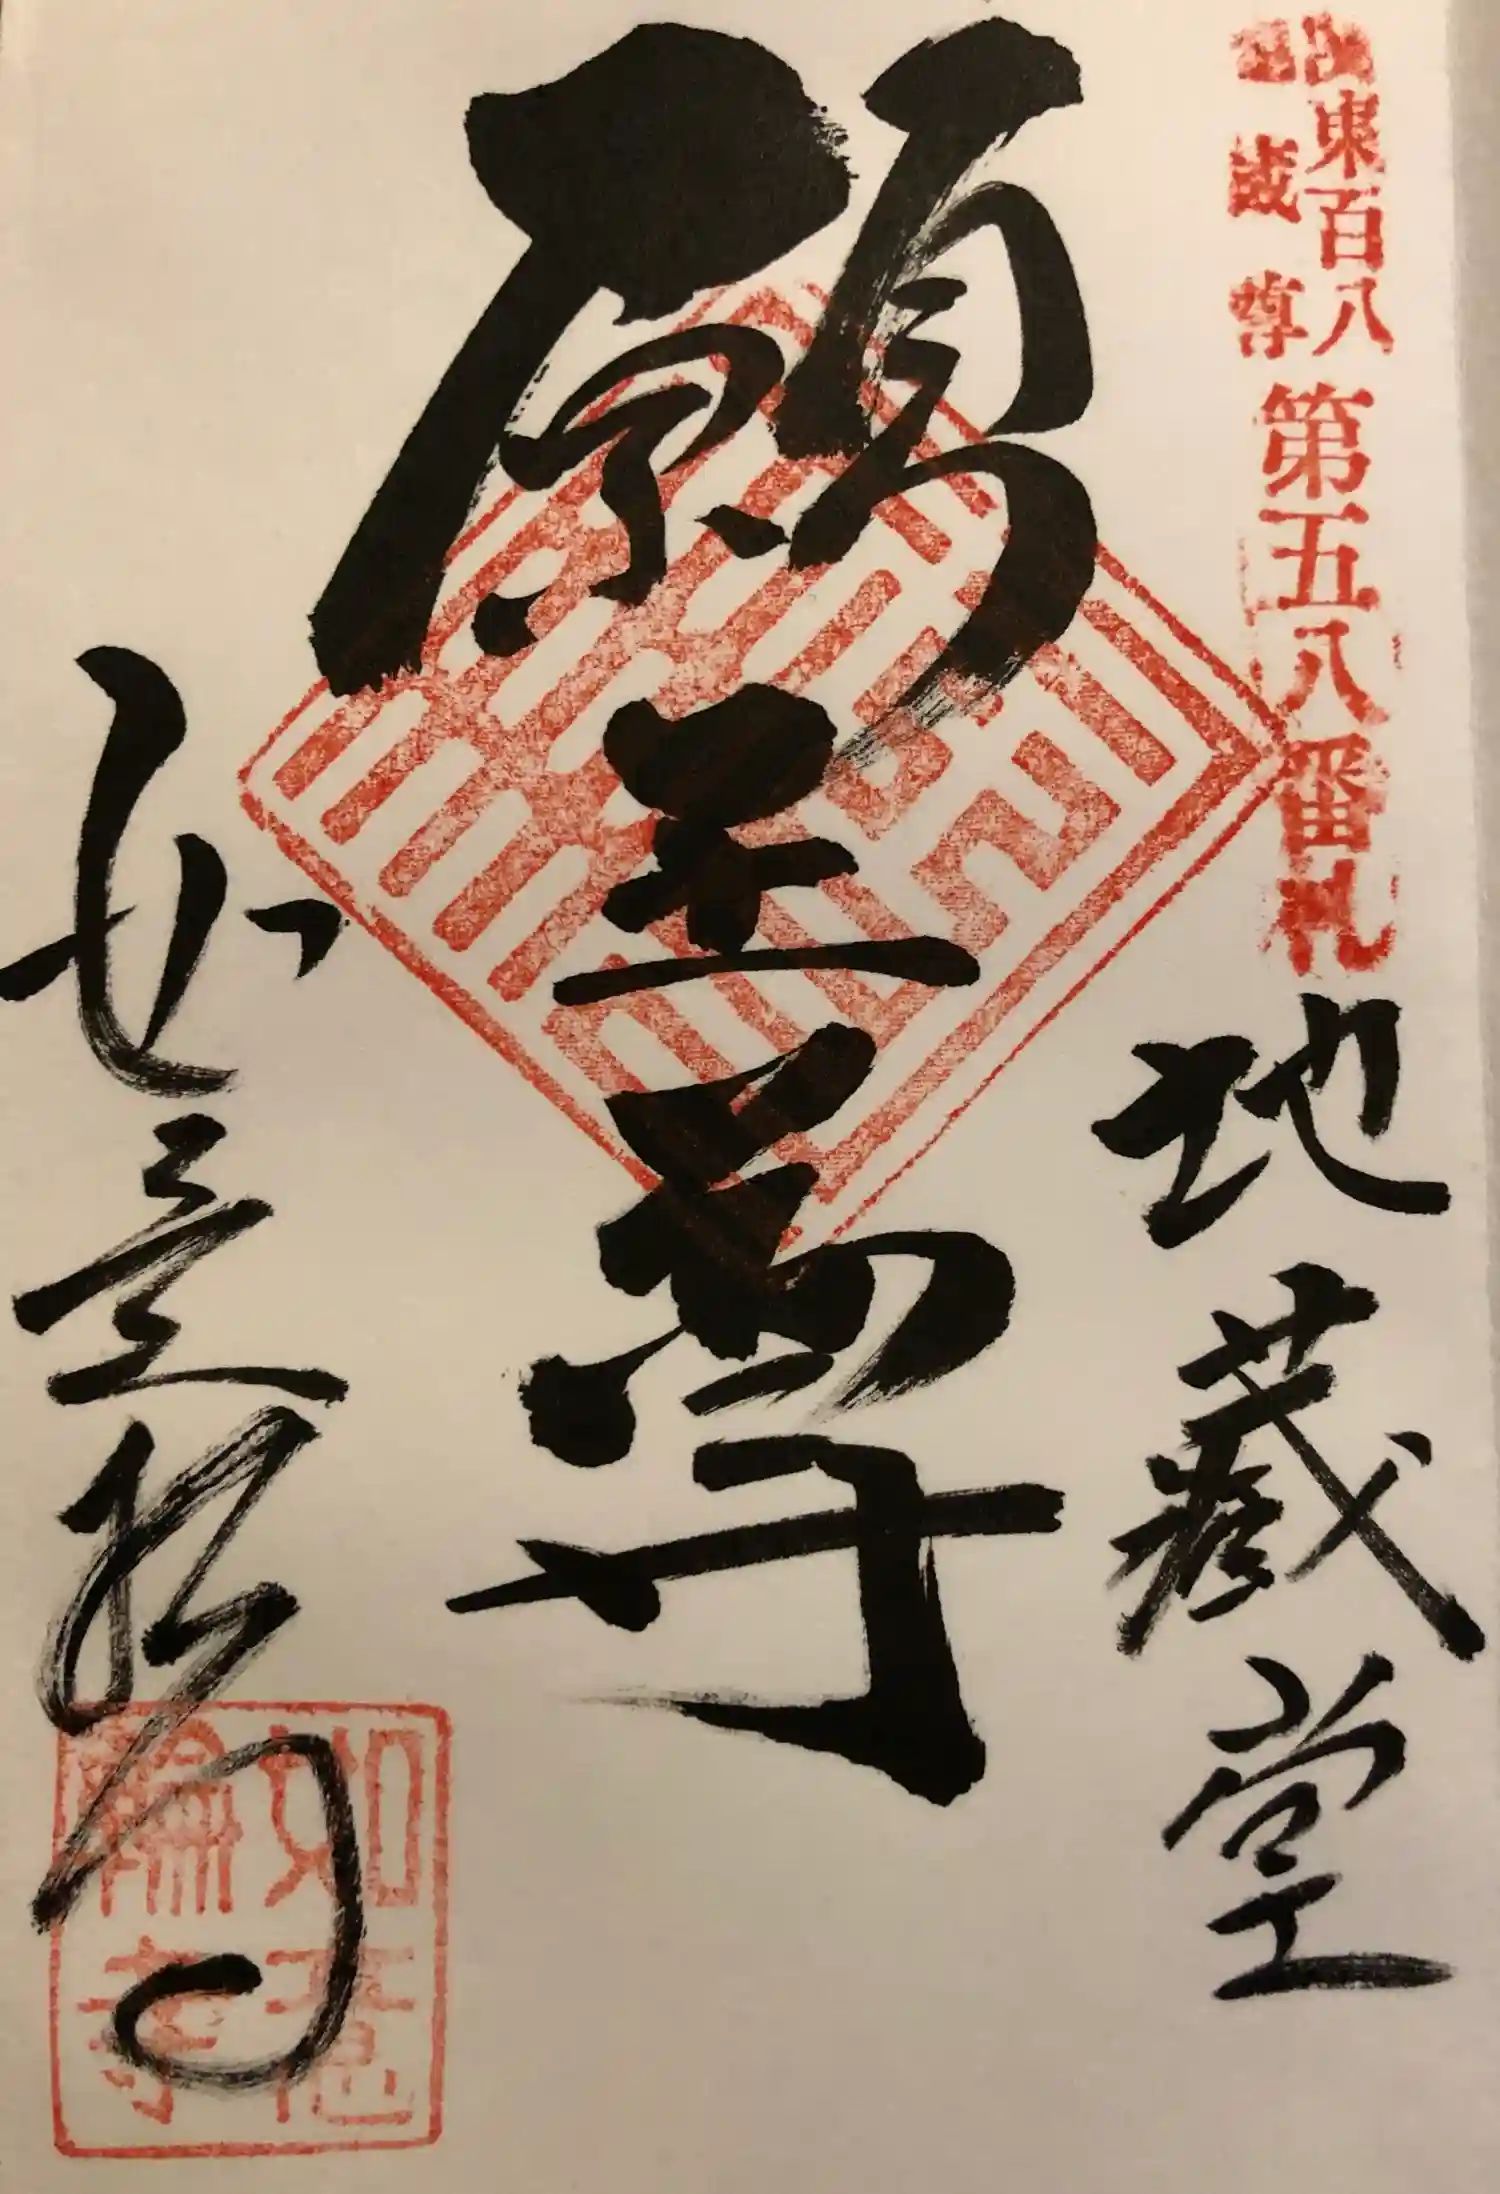 関東百八
地蔵尊
第五八番札
地蔵堂
願王尊
如意輪寺
如意
輪寺